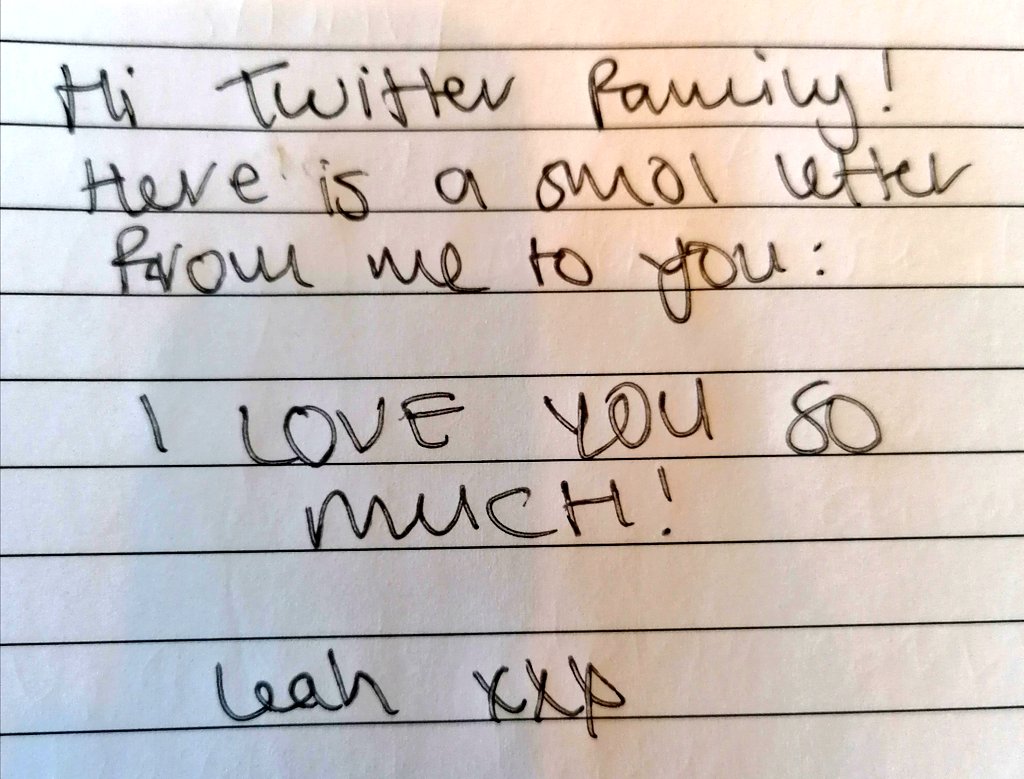 Hi Twitter family!
Here is a smol letter
from me to you:
I LOVE YOU SO
MUCH!
Leah xxp